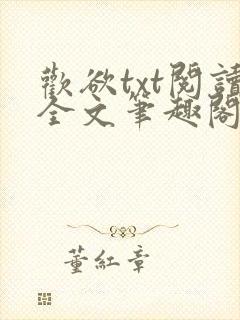 歡欲txt閱讀
全文筆趣閣
董紅章